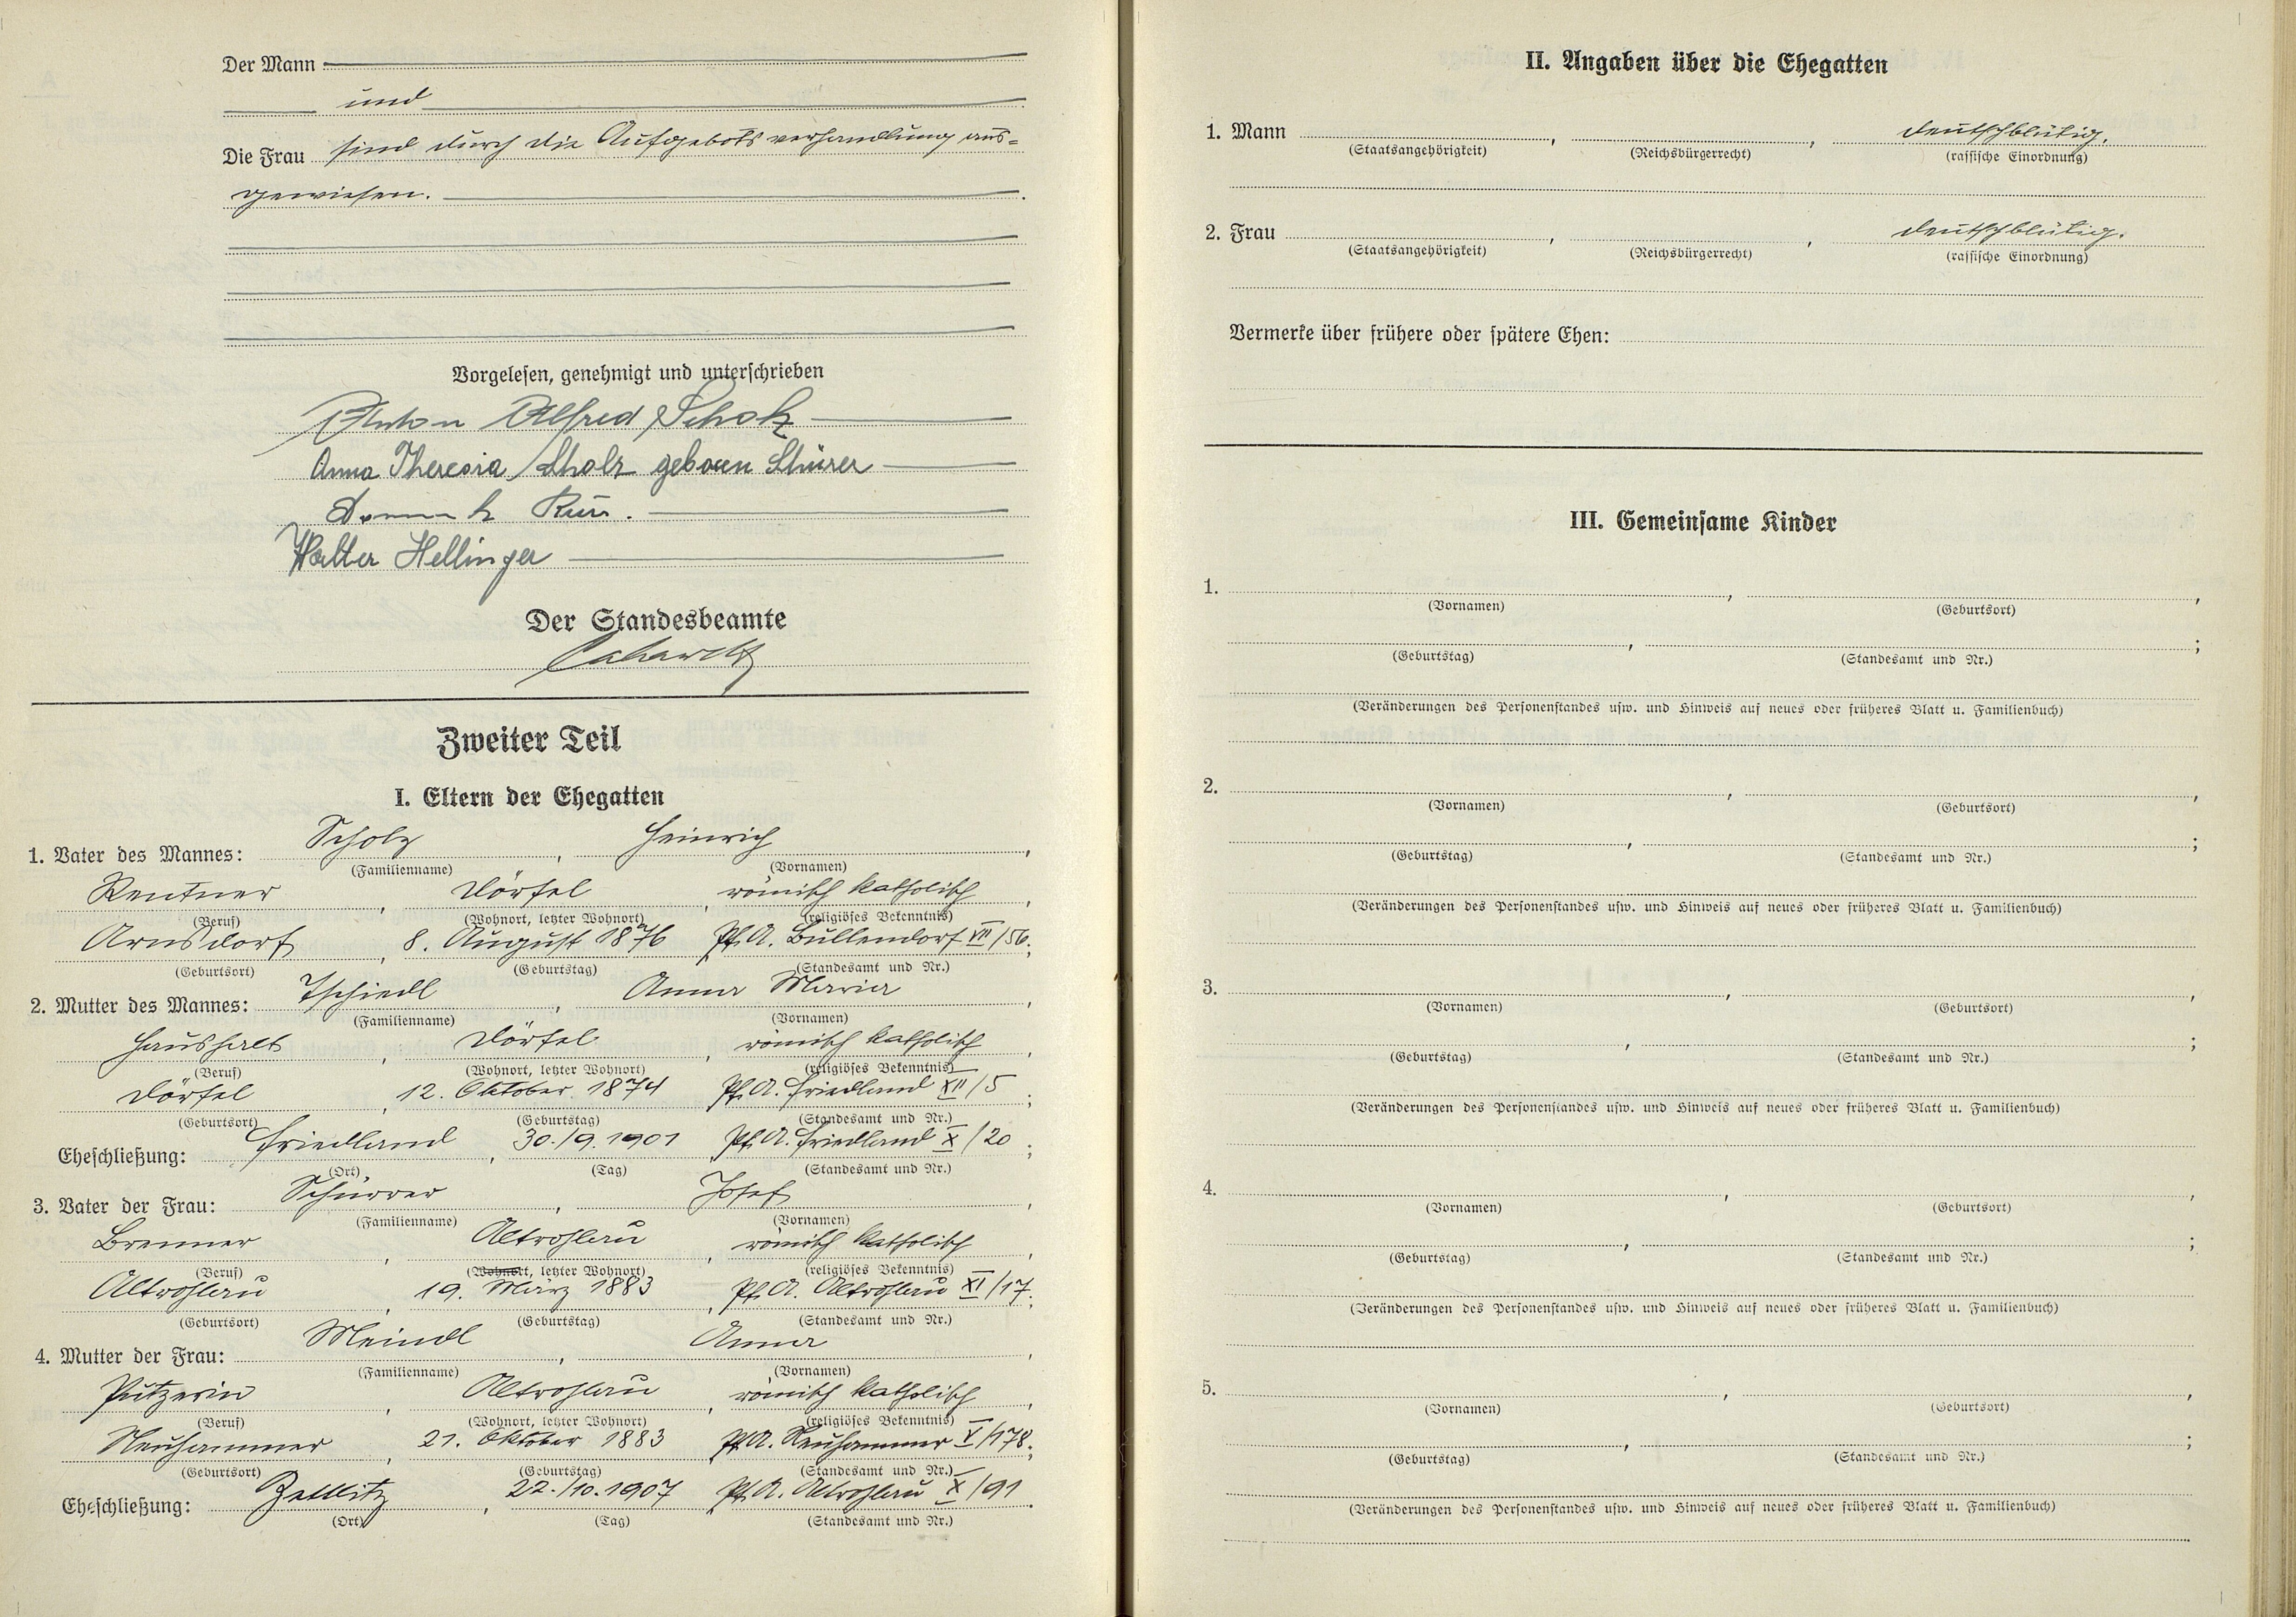 Der Mann
und
Die Frau sind durch die Aufgebotsverhandlung aus=
gewiesen.
Vorgelesen, genehmigt und unterschrieben
Anton Alfred Scholz
Anna Theresia Scholz geboren Schürer
Walter Hellinger
Der Standesbeamte
Zweiter Teil
I. Eltern der Ehegatten
1. Vater des Mannes: Scholz, Heinrich,
(Familienname) (Vornamen)
Rentner, Dörfel, römisch katholisch,
(Beruf) (Wohnort, letzter Wohnort) (religiöses Bekenntnis)
Arnsdorf, 8. August 1876, Pf. A. Bullendorf VII/56;
(Geburtsort) (Geburtstag) (Standesamt und Nr.)
2. Mutter des Mannes: Tschiedl, Anna Maria,
(Familienname) (Vornamen)
Haushalt, Dörfel, römisch katholisch,
(Beruf) (Wohnort, letzter Wohnort) (religiöses Bekenntnis)
Dörfel, 12. Oktober 1874, Pf. A. Friedland XII/5;
(Geburtsort) (Geburtstag) (Standesamt und Nr.)
Eheschließung: Friedland, 30./9. 1901, Pf. A. Friedland X/20;
(Ort) (Tag) (Standesamt und Nr.)
3. Vater der Frau: Schürrer, Josef,
(Familienname) (Vornamen)
Brenner, Altrohlau, römisch katholisch,
(Beruf) (Wohnort, letzter Wohnort) (religiöses Bekenntnis)
Altrohlau, 19. März 1883, Pf. A. Altrohlau XI/17;
(Geburtsort) (Geburtstag) (Standesamt und Nr.)
4. Mutter der Frau: Meindl, Anna,
(Familienname) (Vornamen)
Putzerin, Altrohlau, römisch katholisch,
(Beruf) (Wohnort, letzter Wohnort) (religiöses Bekenntnis)
Neuhammer, 21. Oktober 1883, Pf. A. Neuhammer V/178;
(Geburtsort) (Geburtstag) (Standesamt und Nr.)
Eheschließung: Zettlitz, 22./10. 1907, Pf. A. Altrohlau X/91.
(Ort) (Tag) (Standesamt und Nr.)
II. Angaben über die Ehegatten
1. Mann , , deutschblütig.
(Staatsangehörigkeit) (Reichsbürgerrecht) (rassische Einordnung)
2. Frau , , deutschblütig.
(Staatsangehörigkeit) (Reichsbürgerrecht) (rassische Einordnung)
Vermerke über frühere oder spätere Ehen:
III. Gemeinsame Kinder
1. , ,
(Vornamen) (Geburtsort)
, ;
(Geburtstag) (Standesamt und Nr.)
(Veränderungen des Personenstandes usw. und Hinweis auf neues oder früheres Blatt u. Familienbuch)
2. , ,
(Vornamen) (Geburtsort)
, ;
(Geburtstag) (Standesamt und Nr.)
(Veränderungen des Personenstandes usw. und Hinweis auf neues oder früheres Blatt u. Familienbuch)
3. , ,
(Vornamen) (Geburtsort)
, ;
(Geburtstag) (Standesamt und Nr.)
(Veränderungen des Personenstandes usw. und Hinweis auf neues oder früheres Blatt u. Familienbuch)
4. , ,
(Vornamen) (Geburtsort)
, ;
(Geburtstag) (Standesamt und Nr.)
(Veränderungen des Personenstandes usw. und Hinweis auf neues oder früheres Blatt u. Familienbuch)
5. , ,
(Vornamen) (Geburtsort)
, ;
(Geburtstag) (Standesamt und Nr.)
(Veränderungen des Personenstandes usw. und Hinweis auf neues oder früheres Blatt u. Familienbuch)